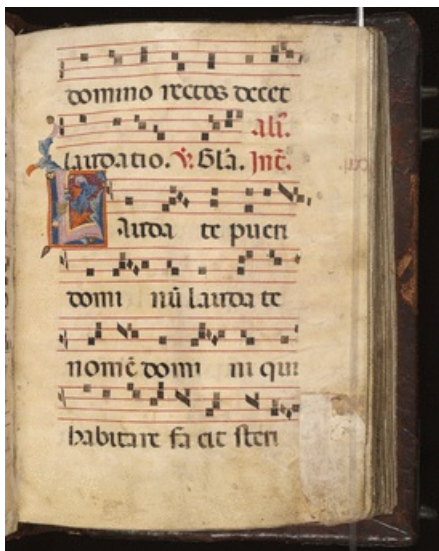 domino rectos decet
alī.
laudatio. V. Gl̄a. Int̄.
Lauda te pueri
domi nū lauda te
nomē domi ni qui
habitare fa cit steri